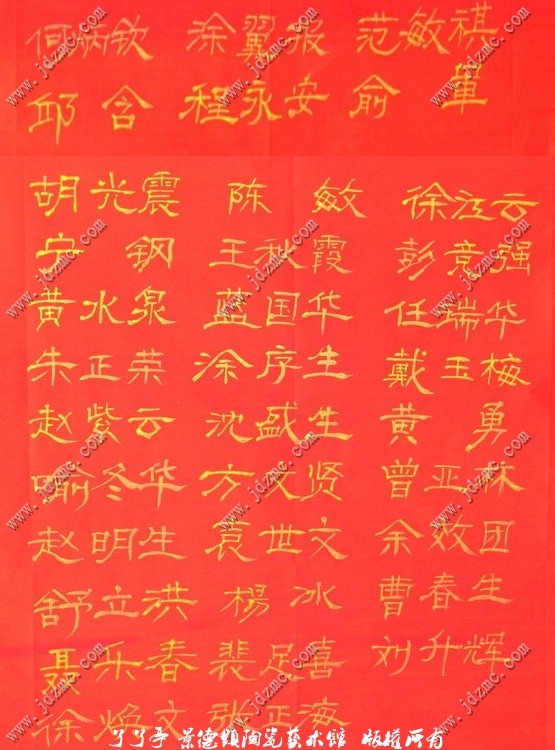 何炳钦 涂翼报 范敏祺
邱含 程永安 俞军
胡光震 陈敏 徐江云
宁钢 王秋霞 彭竞强
黄水泉 蓝国华 任瑞华
朱正荣 涂序生 戴玉梅
赵紫云 沈盛生 黄勇
喻冬华 方文贤 曾亚林
赵明生 袁世文 余效团
舒立洪 杨冰 曹春生
聂乐春 裴足喜 刘升辉
徐焕文 张正海
丫丫亭 景德镇陶瓷艺术馆 版权所有
www.jdzmc.com